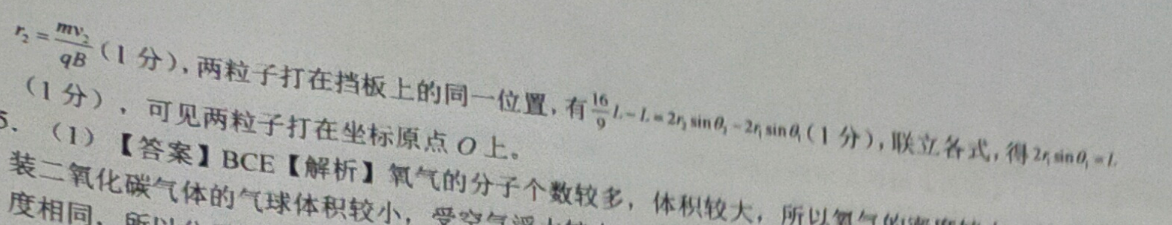 r₂=mv₂/qB(1分),两粒子打在挡板上的同一位置,有16/9 L-L=2r₂sinθ₂-2r₁sinθ₁(1分),联立各式,得2r₁sinθ₁=L
(1分),可见两粒子打在坐标原点O上。
5.(1)【答案】BCE【解析】氧气的分子个数较多,体积较大,所以氧气的
装二氧化碳气体的气球体积较小,受空气浮
度相同,所以